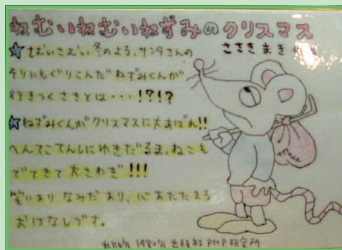 ねむいねむいねずみのクリスマス
ささき まき
★さむいさむい冬のよる、サンタさんの
そりにもぐりこんだねずみくんが
行きつくさきとは・・・!?!?
★ねずみくんがクリスマスに大あばれ!!
へんてこてんしにゆきだるま、ねこも
でてきて大さわぎ!!!
笑いあり なみだあり、心 あたたまる
おはなしです。
1980年 出版社 PHP研究所